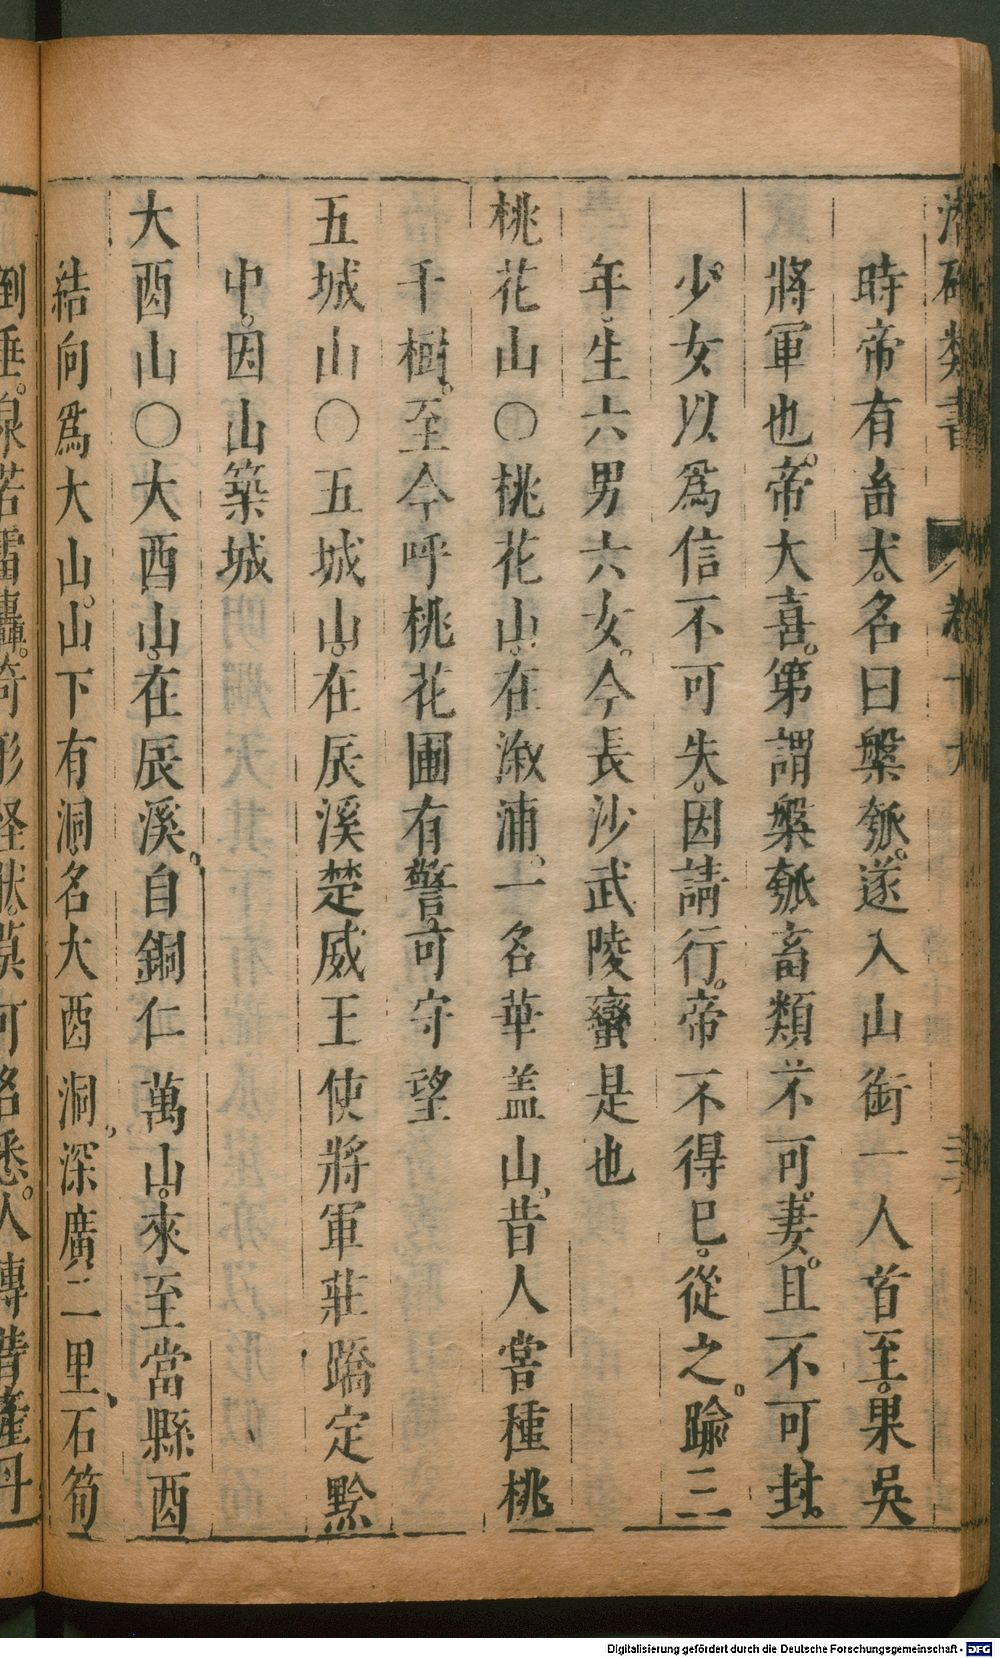 潛確類書 卷十九
時帝有畜犬。名曰槃瓠。遂入山銜一人首至。果吳
將軍也。帝大喜。第謂槃瓠畜類。不可妻。且不可封。
少女以爲信不可失。因請行。帝不得已。從之。踰三
年。生六男六女。今長沙武陵蠻是也
桃花山○桃花山。在溆浦。一名華盖山。昔人嘗種桃
千樹。至今呼桃花圃有警。可守望
五城山○五城山。在辰溪楚威王使將軍莊蹻定黔
中。因山築城
大酉山○大酉山。在辰溪。自銅仁萬山。來至當縣酉
結向爲大山。山下有洞。名大酉洞。深廣二里。石筍
倒垂。泉若雷轟。奇形怪狀。莫可名悉。人傳昔產丹
Digitalisierung gefördert durch die Deutsche Forschungsgemeinschaft - DFG